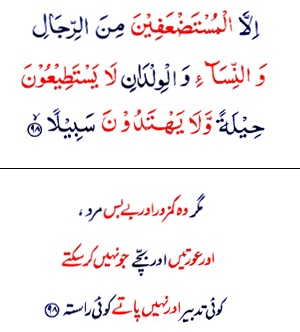 اِلَّا الْمُسْتَضْعَفِيْنَ مِنَ الرِّجَالِ
وَ النِّسَآءِ وَ الْوِلْدَانِ لَا يَسْتَطِيْعُوْنَ
حِيْلَةً وَّ لَا يَهْتَدُوْنَ سَبِيْلًا ۙ﴿۹۸﴾
مگر وہ کمزور اور بے بس مرد ،
اور عورتیں اور بچّے جو نہیں کر سکتے
کوئی تدبیر اور نہیں پاتے کوئی راستہ ﴿۹۸﴾